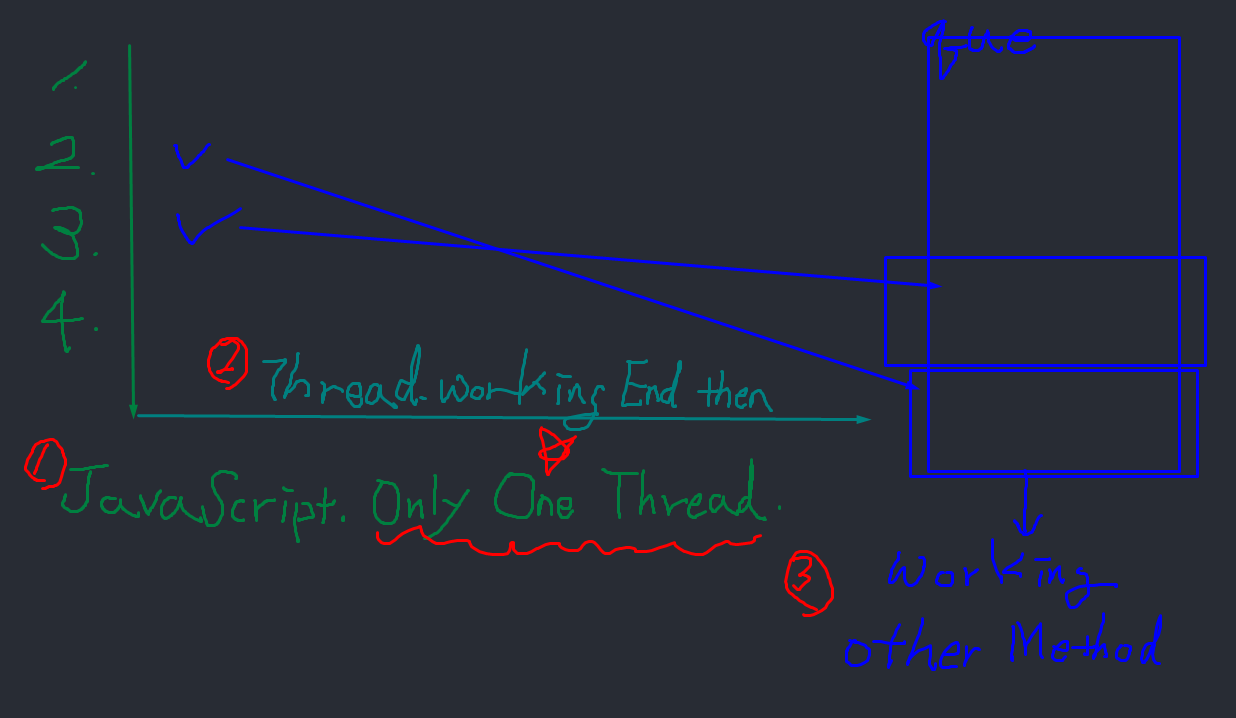 que
1.
2.
3.
4.
2 Thread working End then
1 JavaScript. Only One Thread.
3 Working
other Method